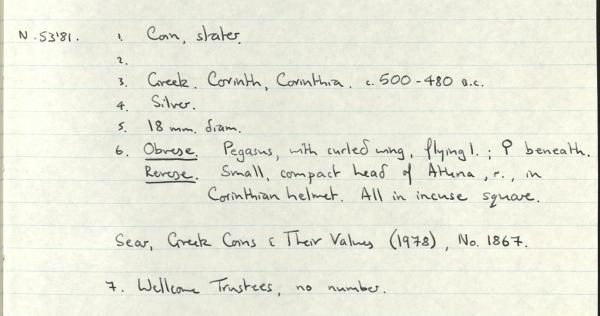 N.53'81. 1. Coin, stater.
2.
3. Greek. Corinth, Corinthia. c. 500-480 B.C.
4. Silver.
5. 18 mm. diam.
6. Obverse. Pegasus, with curled wing, flying l. ; Ϙ beneath.
Reverse. Small, compact head of Athena, r., in
Corinthian helmet. All in incuse square.
Sear, Greek Coins & Their Values (1978), No. 1867.
7. Wellcome Trustees, no number.